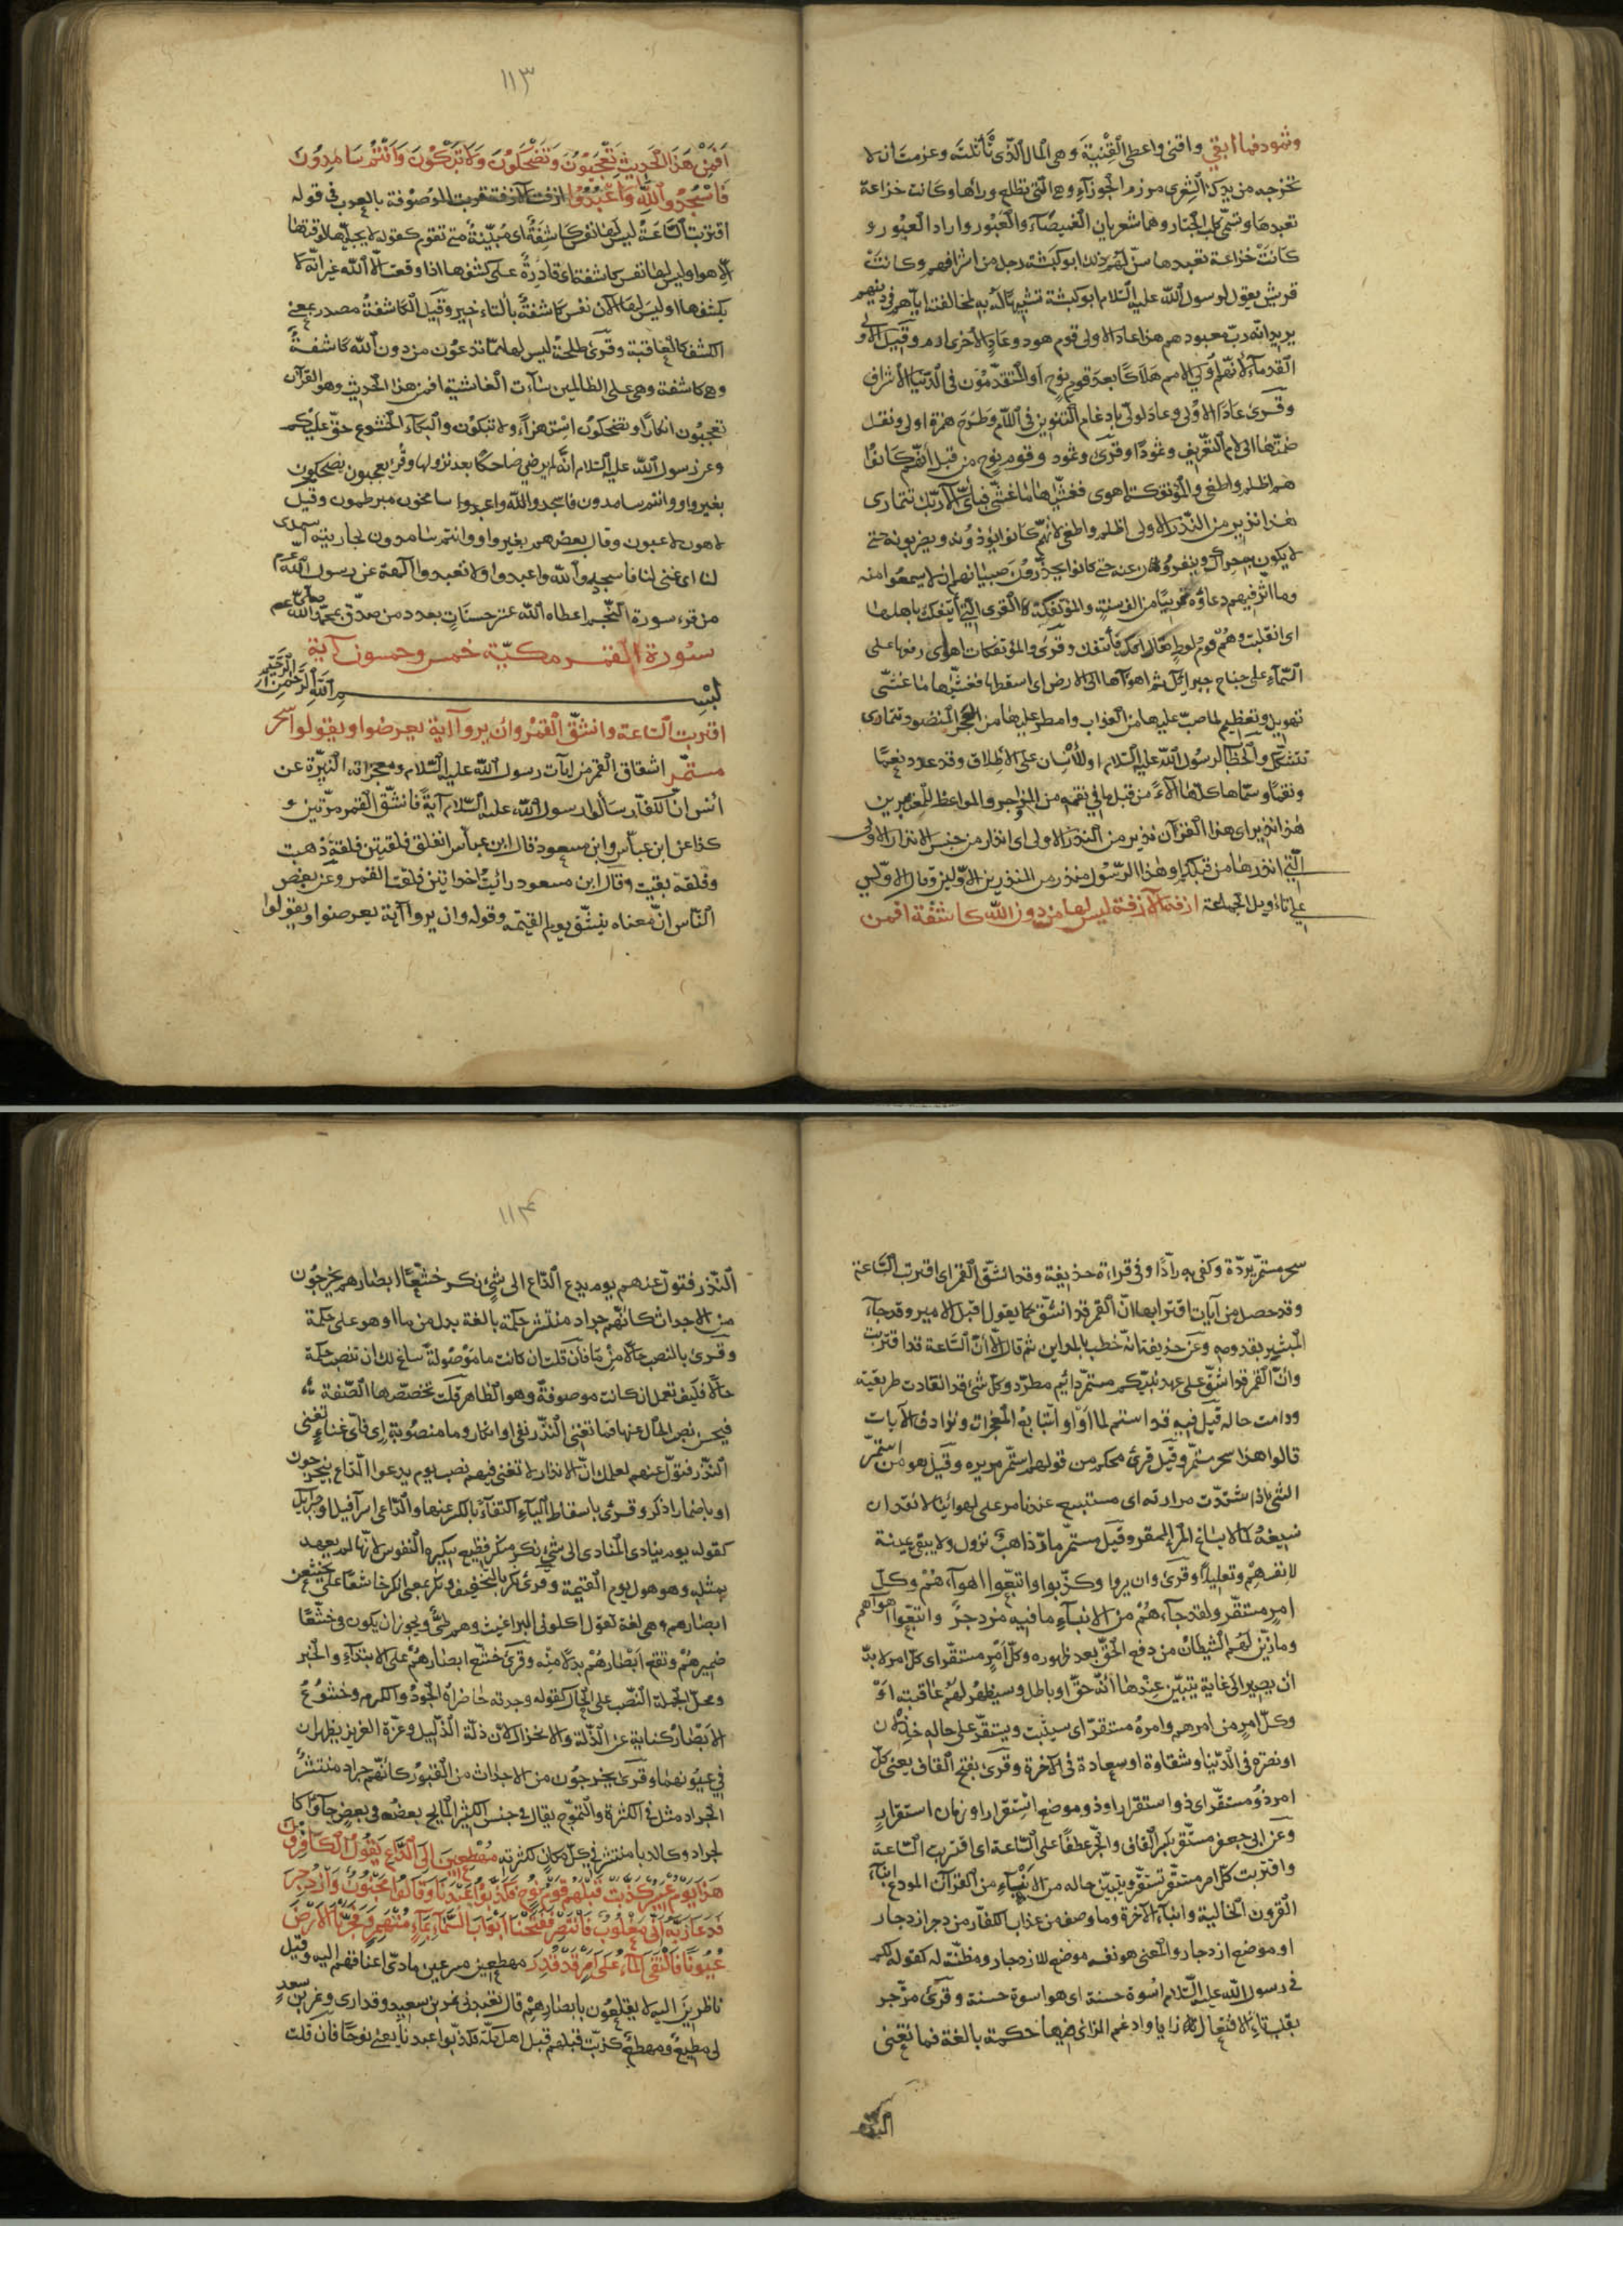 وثمود فما ابقى واقنى واعطى القنية وهى المال الذى تأثلته وعزمت ان لا
تخرجه من يدك الشعرى مرزم الجوزاء وهى التى تطلع وراءها وكانت خزاعة
تعبدها وتسمى كلب الجبار وهما شعريان الغميصاء والعبور واراد العبور و
كانت خزاعة تعبدها سن لهم ذلك ابو كبشة رجل من اشرافهم وكانت
قريش يقول لرسول الله عليه السلام ابو كبشة تشبيها له به لمخالفته اياهم فى دينهم
يريد انه رب معبودهم هذا عاد الاولى قوم هود وعاد الاخرى ارم وقيل الاولى
القدماء لانهم اولى الامم هلاكا بعد قوم نوح او المتقدمون فى الدنيا الاشراف
وقرئ عادا الاولى وعاد لولى بادغام التنوين فى اللام وطرح همزة اولى ونقل
ضمتها الى لام التعريف وثمودا وقرئ وثمود وقوم نوح من قبل انهم كانوا
هم اظلم واطغى والمؤتفكة اهوى فغشيها ما غشى فباى آلاء ربك تتمارى
هذا نذير من النذر الاولى اظلم واطغى لانهم كانوا يؤذونه ويضربونه حتى
لا يكون به حراك وينفرون عنه حتى كانوا يحذرون صبيانهم ان لا يسمعوا منه
وما اثر فيهم دعاؤه قريبا من الف سنة والمؤتفكة القرى التى ايتفكت باهلها
اى انقلبت وهم قوم لوط يقال افكه فأتفك وقرئ والمؤتفكات اهوى رفعها على
السماء على جناح جبرائيل ثم اهواها الى الارض اى اسقطها فغشيها ما غشى
تهويل وتعظيم لما صب عليها من العذاب وامطر عليها من الحجر المنضود تتمارى
تتشكك والخطاب لرسول الله عليه السلام او للانسان على الاطلاق وقد عدد نعما
ونقما وسماها كلها آلاء من قبل ما فى نقمه من المزاجر والمواعظ للمعتبرين
هذا نذير اى هذا القرآن نذير من النذر الاولى اى انذار من جنس الانذار الاولى
التى انذر بها من قبلكم او هذا الرسول منذر من المنذرين الاولين وقال الاولى
على تاويل الجماعة ازفة الآزفة ليس لها من دون الله كاشفة افمن
١١٣
افمن هذا الحديث تعجبون وتضحكون ولا تبكون وانتم سامدون
فاسجدوا لله واعبدوا ازفت الآزفة قربت الموصوفة بالقرب فى قوله
اقتربت الساعة ليس لها نفس كاشفة اى مبينة متى تقوم كقوله لا يجليها لوقتها
الا هو او ليس لها نفس كاشفة اى قادرة على كشفها اذا وقعت الا الله غير انه لا
يكشفها او ليس لها الآن نفس كاشفة بالتاخير وقيل الكاشفة مصدر بمعنى
الكشف كالعاقبة وقرئ طلحة ليس لها مما تدعون من دون الله كاشفة
وهى كاشفة وهى على الظالمين ساءت الغاشية افمن هذا الحديث وهو القرآن
تعجبون انكارا وتضحكون استهزاء ولا تبكون والبكاء والخشوع حق عليكم
وعن رسول الله عليه السلام انه لم ير ضاحكا بعد نزولها وقرئ تعجبون تضحكون
بغير واو وانتم سامدون فاسجدوا لله واعبدوا سامخون مبرطمون وقيل
لاهون لاعبون وقال بعضهم بغير واو وانتم سامدون لجاريته اسمدى
لنا اى غنى لنا فاسجدوا لله واعبدوا ولا تعبدوا الآلهة عن رسول الله
من قرء سورة النجم اعطاه الله عشر حسنات بعدد من صدق بمحمد
سورة القمر مكية خمس وخمسون آية
بسم الله الرحمن الرحيم
اقتربت الساعة وانشق القمر وان يروا آية يعرضوا ويقولوا سحر
مستمر اشقاق القمر من آيات رسول الله عليه السلام ومعجزاته النيرة عن
انس ان الكفار سألوا رسول الله عليه السلام آية فانشق القمر مرتين و
كذا عن ابن عباس وابن مسعود قال ابن عباس انفلق فلقتين فلقة ذهبت
وفلقة بقيت وقال ابن مسعود رايت حراء بين فلقتى القمر وعن بعض
الناس ان معناه ينشق يوم القيمة وقوله وان يروا آية يعرضوا ويقولوا
سحر مستمر يرده وكفى به رادا وفى قراءة حذيفة وقد انشق القمر اى اقتربت الساعة
وقد حصل من آيات اقترابها ان القمر قد انشق كما يقول اقبل الامير وقد جاء
المبشر بقدومه وعن حذيفة انه خطب بالمداين ثم قال الا ان الساعة قد اقتربت
وان القمر قد انشق على عهد نبيكم مستمر دائم مطرد وكل شئ قد انقادت طريقته
ودامت حاله قيل فيه قد استمر لما راوا تتابع المعجزات وترادف الآيات
قالوا هذا سحر مستمر وقيل قوى محكم من قولهم استمر مريره وقيل هو من استمر
الشئ اذا اشتدت مرارته اى مستبشع عندنا مر على لهواتنا لا نقدر ان
نسيغه كما لا يساغ المر الممقر وقيل مستمر مار ذاهب يزول ولا يبقى تمنية
لانفسهم وتعليلا وقرئ وان يروا وكذبوا واتبعوا اهواءهم وكل
امر مستقر ولقد جاءهم من الانباء ما فيه مزدجر واتبعوا اهواءهم
وما زين لهم الشيطان من دفع الحق بعد ظهوره وكل امر مستقر اى كل امر لا بد
ان يصير الى غاية يتبين عندها انه حق او باطل وسيظهر لهم عاقبته او
وكل امر من امرهم وامره مستقر اى سيثبت ويستقر على حاله خذلان
او نصرة فى الدنيا وشقاوة او سعادة فى الآخرة وقرئ بفتح القاف يعنى كل
امر ذو مستقر اى ذو استقرار او ذو موضع استقرار او زمان استقرار
وعن ابى جعفر مستقر بكسر القاف والجر عطفا على الساعة اى اقتربت الساعة
واقتربت كل امر مستقر تستقر ويتبين حاله من الانباء من القرآن المودع انباء
القرون الخالية وانباء الآخرة وما وصف من عذاب الكفار مزدجر ازدجار
او موضع ازدجار والمعنى هو نفسه موضع للازدجار ومظنة له كقوله لكم
فى رسول الله عليه السلام اسوة حسنة اى هو اسوة حسنة وقرئ مزجر
بقلب تاء الافتعال زايا وادغم الزاى فيها حكمة بالغة فما تغنى
النذر
١١٤
النذر فتول عنهم يوم يدع الداع الى شئ نكر خشعا ابصارهم يخرجون
من الاجداث كانهم جراد منتشر حكمة بالغة بدل من ما او هو على حكمة
وقرئ بالنصب حالا من ما فان قلت ان كانت ما موصولة ساغ لك ان تنصب حكمة
حالا فكيف تعمل ان كانت موصوفة وهو الظاهر قلت تخصصها الصفة
فيحسن نصب الحال عنها فما تغنى النذر نفى او انكار وما منصوبة اى فاى غناء تغنى
النذر فتول عنهم لعلمك ان الانذار لا تغنى فيهم نصب يوم يدعوا الداع بيخرجون
او باضمار اذكر وقرئ باسقاط الياء اكتفاء بالكسر عنها والداعى اسرافيل او جبرائيل
كقوله يوم ينادى المنادى الى شئ نكر منكر فظيع ينكره النفوس لانها لم يعهد
بمثله وهو هول يوم القيمة وقرئ نكر بالتخفيف ونكر بمعنى انكر خاشعا على يخشعن
ابصارهم وهى لغة تقول اكلونى البراغيث وهم طى ويجوز ان يكون فى خشعا
ضميرهم وتقع ابصارهم بدلا منه وقرئ خشع ابصارهم على الابتداء والخبر
ومحل الجملة النصب على الحال كقوله وجدته حاضراه الجود والكرم وخشوع
الابصار كناية عن الذلة والانخزال لان ذلة الذليل وعزة العزيز يظهران
فى عيونهما وقرئ يخرجون من الاجداث من القبور كانهم جراد منتشر
الجراد مثل فى الكثرة والتموج يقال فى جنس الكثير المايج بعضه فى بعض جاؤا كا
لجراد وكالدبا منتشر فى كل مكان لكثرته مهطعين الى الداع يقول الكافرون
هذا يوم عسر كذبت قبلهم قوم نوح فكذبوا عبدنا وقالوا مجنون وازدجر
فدعا ربه انى مغلوب فانتصر ففتحنا ابواب السماء بماء منهمر وفجرنا الارض
عيونا فالتقى الماء على امر قد قدر مهطعين مسرعين مادى اعناقهم اليه وقيل
ناظرين اليه لا يقلعون بابصارهم قال تعبدنى نمر بن سعد وقد ارى ونمر بن سعد
لى مطيع ومهطع كذبت قبلهم قبل اهل مكة فكذبوا عبدنا يعنى نوحا فان قلت